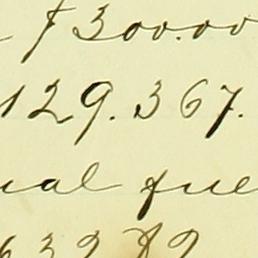 $ 300.00
129.367.
ual fue